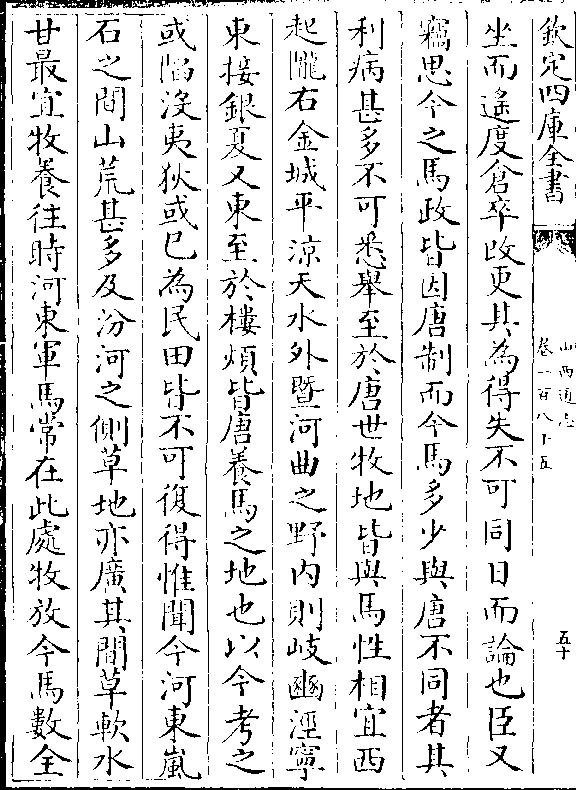 欽定四庫全書
山西通志
卷一百八十五
五十
坐而遥度倉卒改更其為得失不可同日而論也臣又
竊思今之馬政皆因唐制而今馬多少與唐不同者其
利病甚多不可悉舉至於唐世牧地皆與馬性相宜西
起隴右金城平涼天水外暨河曲之野内則岐豳涇寧
東接銀夏又東至於樓煩皆唐養馬之地也以今考之
或陷沒夷狄或已為民田皆不可復得惟聞今河東嵐
石之間山荒甚多及汾河之側草地亦廣其間草軟水
甘最宜牧養往時河東軍馬常在此處牧放今馬數全